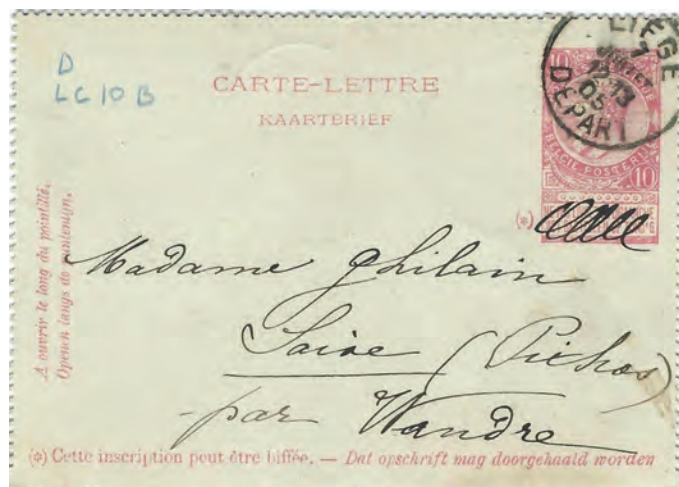 D
LC 10 B
CARTE-LETTRE
KAARTBRIEF
LIÈGE
7
JUILLET
12-13
05
DÉPART
10
BELGIE POSTERIJ 10
(*)
A ouvrir le long du pointillé.
Openen langs de punteerlijn.
Madame Ghilain
Saive (Pichos)
par Wandre
(*) Cette inscription peut être biffée. — Dat opschrift mag doorgehaald worden